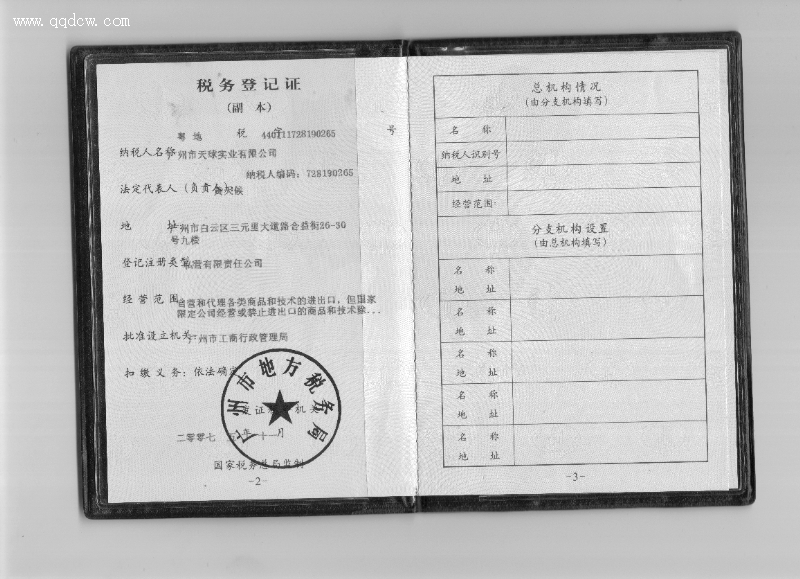 www.qqdcw.com
税务登记证
(副 本)
粤 地 税 字 440111728190265 号
纳税人名称 广州市天球实业有限公司
纳税人编码:728190265
法定代表人(负责人)
地 址 广州市白云区三元里大道路合益街26-30
号九楼
登记注册类型 私营有限责任公司
经 营 范 围 自营和代理各类商品和技术的进出口,但国家
限定公司经营或禁止进出口的商品和技术除...
批准设立机关 广州市工商行政管理局
扣 缴 义 务:依法确定
广州市地方税务局
发证机关
二零零七 年 十一 月
国家税务总局监制
-2-
总 机 构 情 况
(由分支机构填写)
名 称
纳税人识别号
地 址
经营范围
分 支 机 构 设 置
(由总机构填写)
名 称
地 址
名 称
地 址
名 称
地 址
名 称
地 址
名 称
地 址
-3-